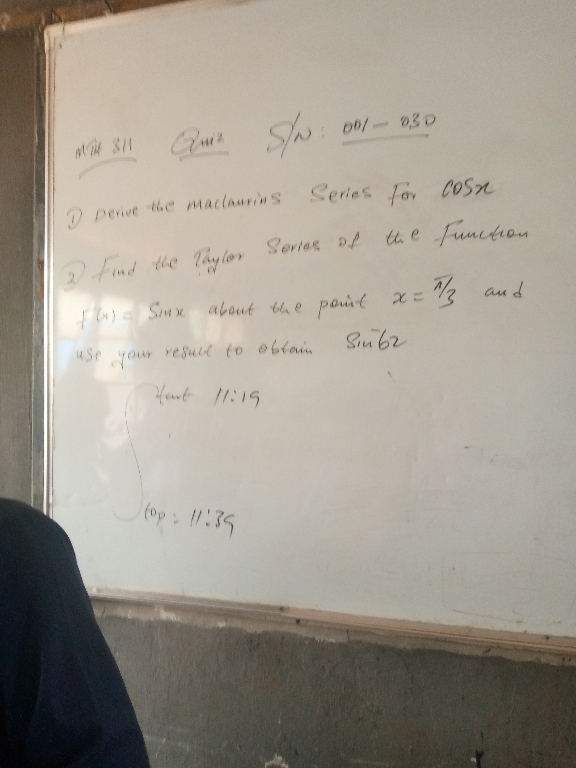 MTH 311 Quiz S/N: 001 - 030
1) Derive the maclaurins Series For cosx
2) Find the Taylor Series of the Function
f(x) = Sinx about the point x = π/3 and
use your result to obtain Sin 62
Start 11:19
Stop: 11:39